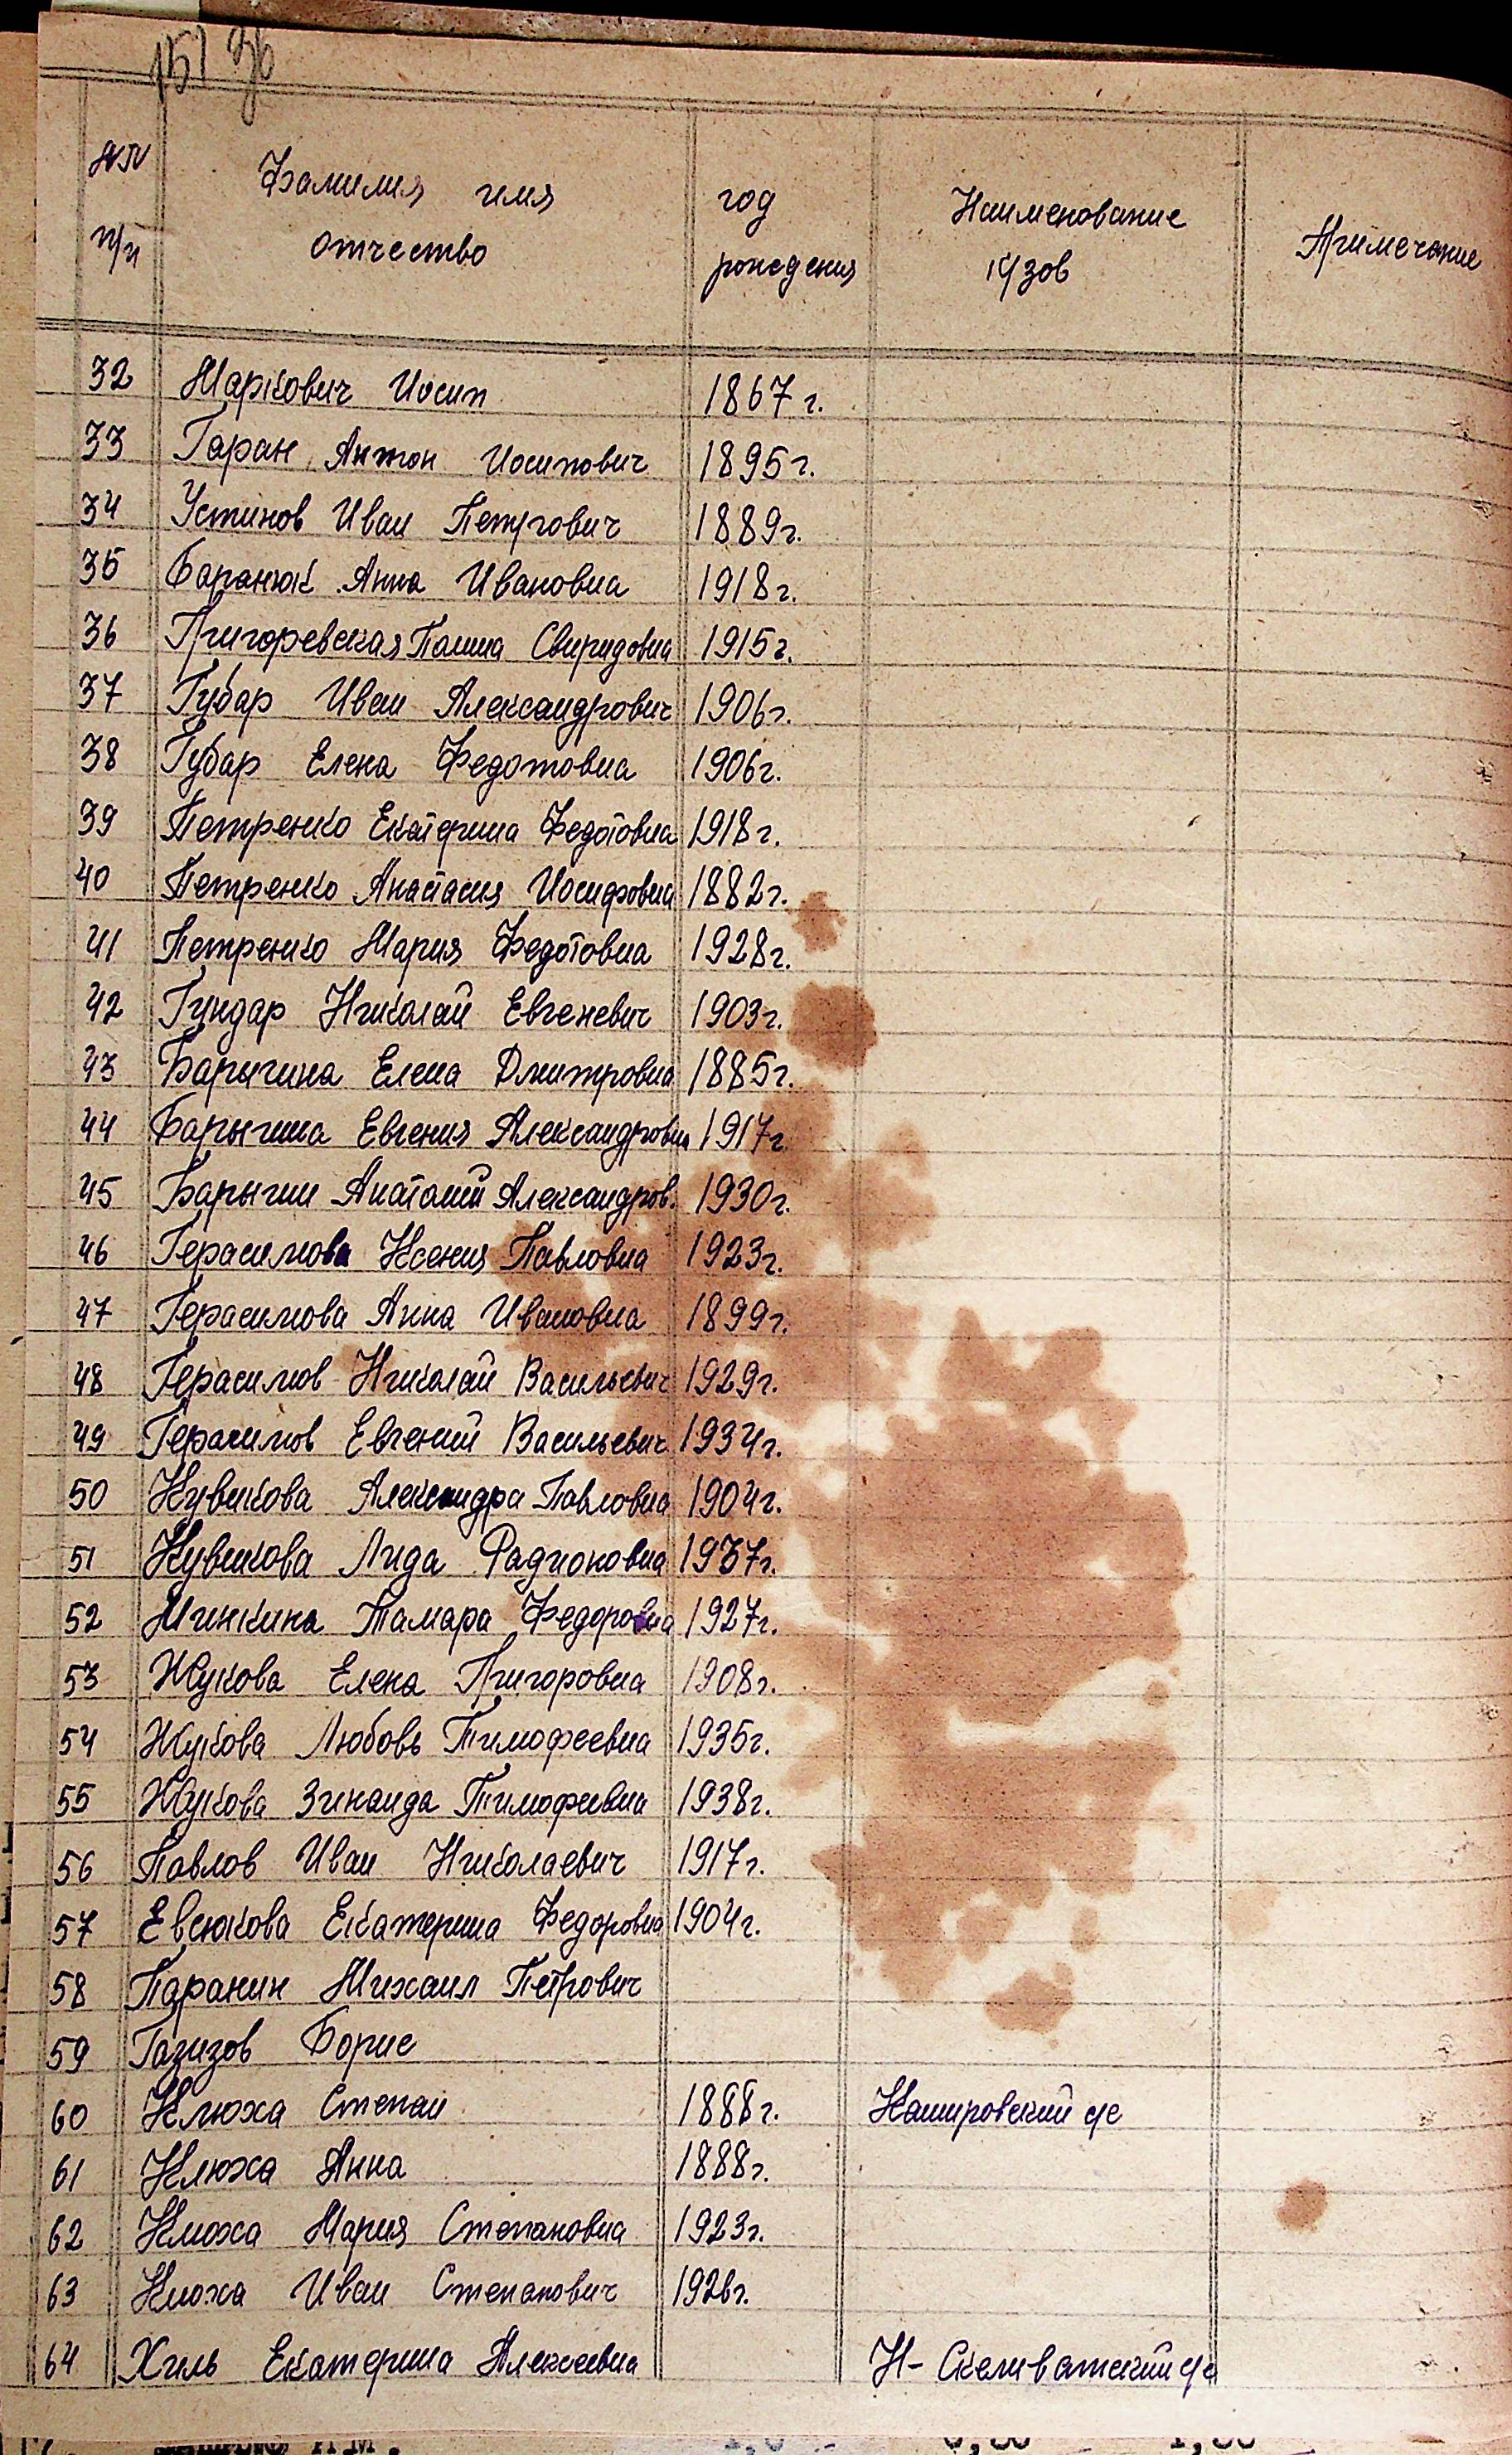 151 36
№№ п/п Фамилия имя отчество год рождения Наименование Примечание
32 Маркович Иосип 1867 г.
33 Гаран Антон Иосипович 1895 г.
34 Устинов Иван Петрович 1889 г.
35 Баранюк Анна Ивановна 1918 г.
36 Григоревская Паша Свиридовна 1915 г.
37 Губар Иван Александрович 1906 г.
38 Губар Елена Федотовна 1906 г.
39 Петренко Екатерина Федотовна 1918 г.
40 Петренко Анастасия Иосифовна 1882 г.
41 Петренко Мария Федотовна 1928 г.
42 Гундар Николай Евгеневич 1903 г.
43 Барыгина Елена Дмитровна 1885 г.
44 Барыгина Евгения Александровна 1917 г.
45 Барыгин Анатолий Александров. 1930 г.
46 Герасимова Ксения Павловна 1923 г.
47 Герасимова Анна Ивановна 1899 г.
48 Герасимов Николай Васильевич 1929 г.
49 Герасимов Евгений Васильевич 1934 г.
50 Кувшкова Александра Павловна 1904 г.
51 Кувшкова Лида Радионовна 1937 г.
52 Минкина Тамара Федоровна 1927 г.
53 Жукова Елена Григоровна 1908 г.
54 Жукова Любовь Тимофеевна 1935 г.
55 Жукова Зинаида Тимофеевна 1938 г.
56 Павлов Иван Николаевич 1917 г.
57 Евсюкова Екатерина Федоровна 1904 г.
58 Паранин Михаил Петрович
59 Газизов Борис
60 Клюха Степан 1888 г. Кашировский с/с
61 Клюха Анна 1888 г.
62 Клюха Мария Степановна 1923 г.
63 Клюха Иван Степанович 1926 г.
64 Хиль Екатерина Алексеевна Н-Скеливатский с/с